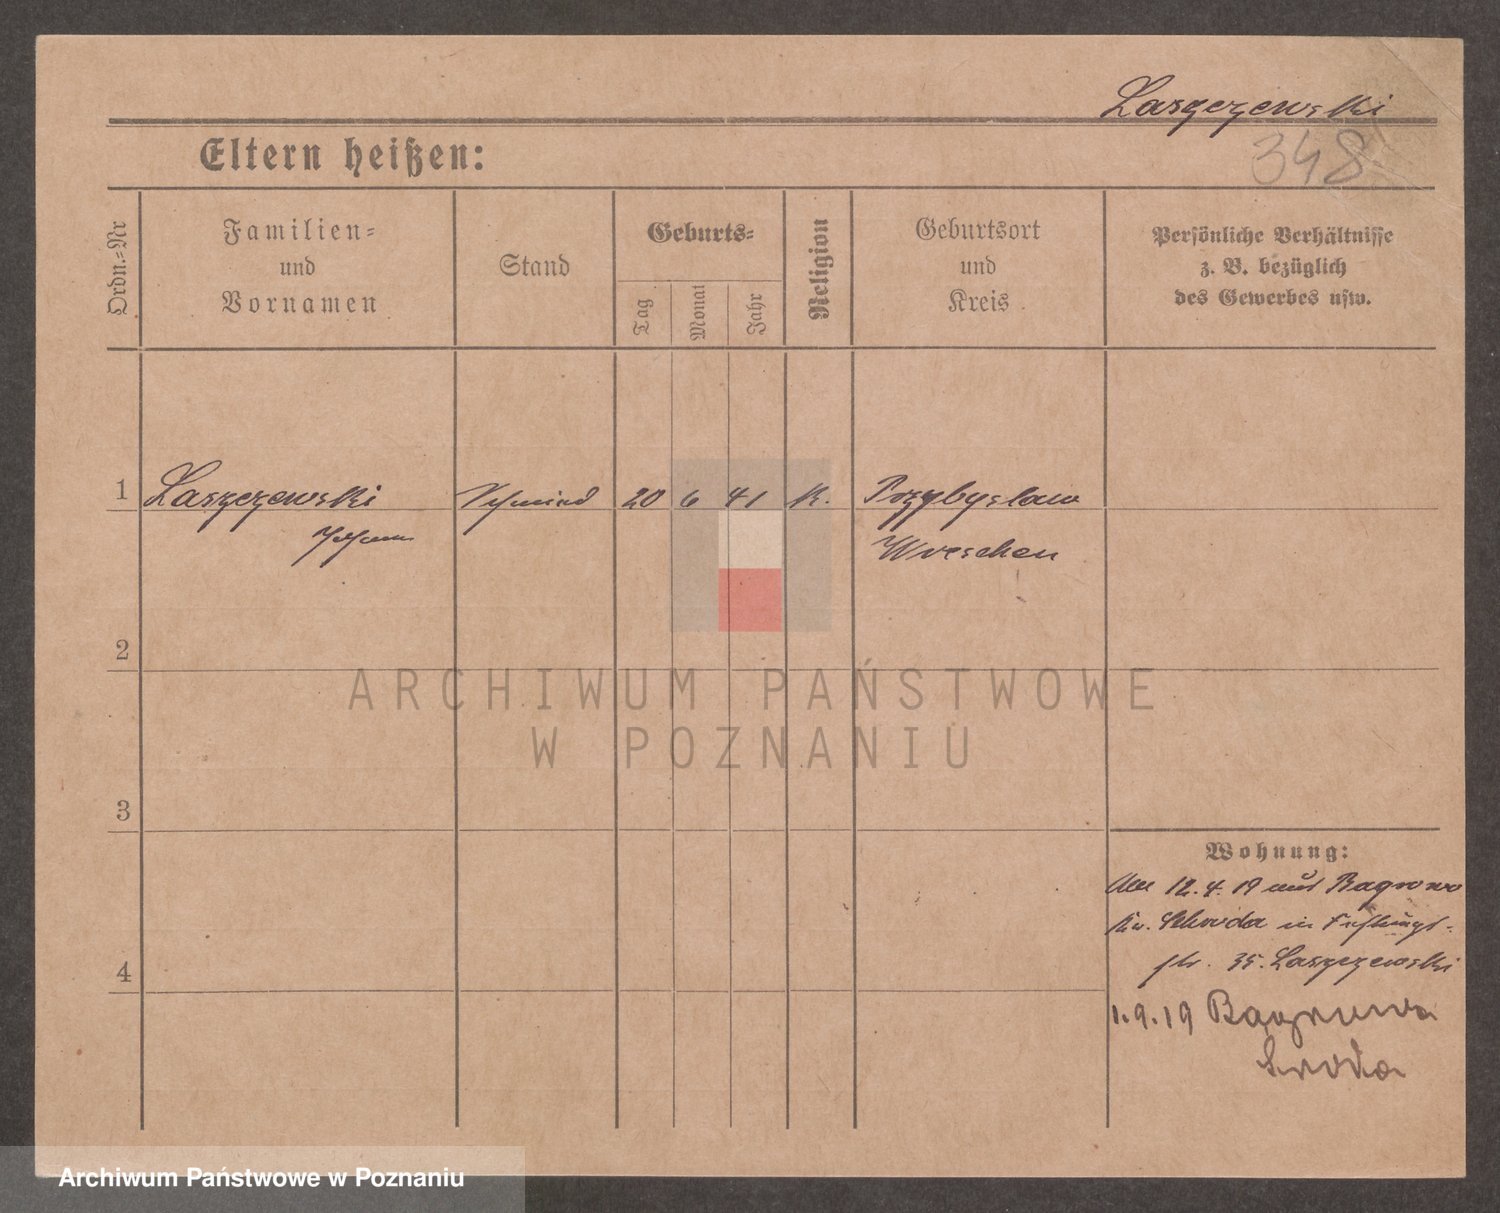 Laszczewski
348
Eltern heißen:
Ordn.-Nr
Familien-
und
Vornamen
Stand
Geburts-
Tag
Monat
Jahr
Religion
Geburtsort
und
Kreis
Persönliche Verhältnisse
z. B. bezüglich
des Gewerbes usw.
1 Laszczewski Schmied 20 6 41 K. Przybyslaw
Johann Wreschen
2
ARCHIWUM PAŃSTWOWE
W POZNANIU
3
Wohnung:
12.4.19 aus Bagrowo
Kr. Schroda in
str. 35. Laszczewski
4
1.9.19 Bagrowo
Środa
Archiwum Państwowe w Poznaniu